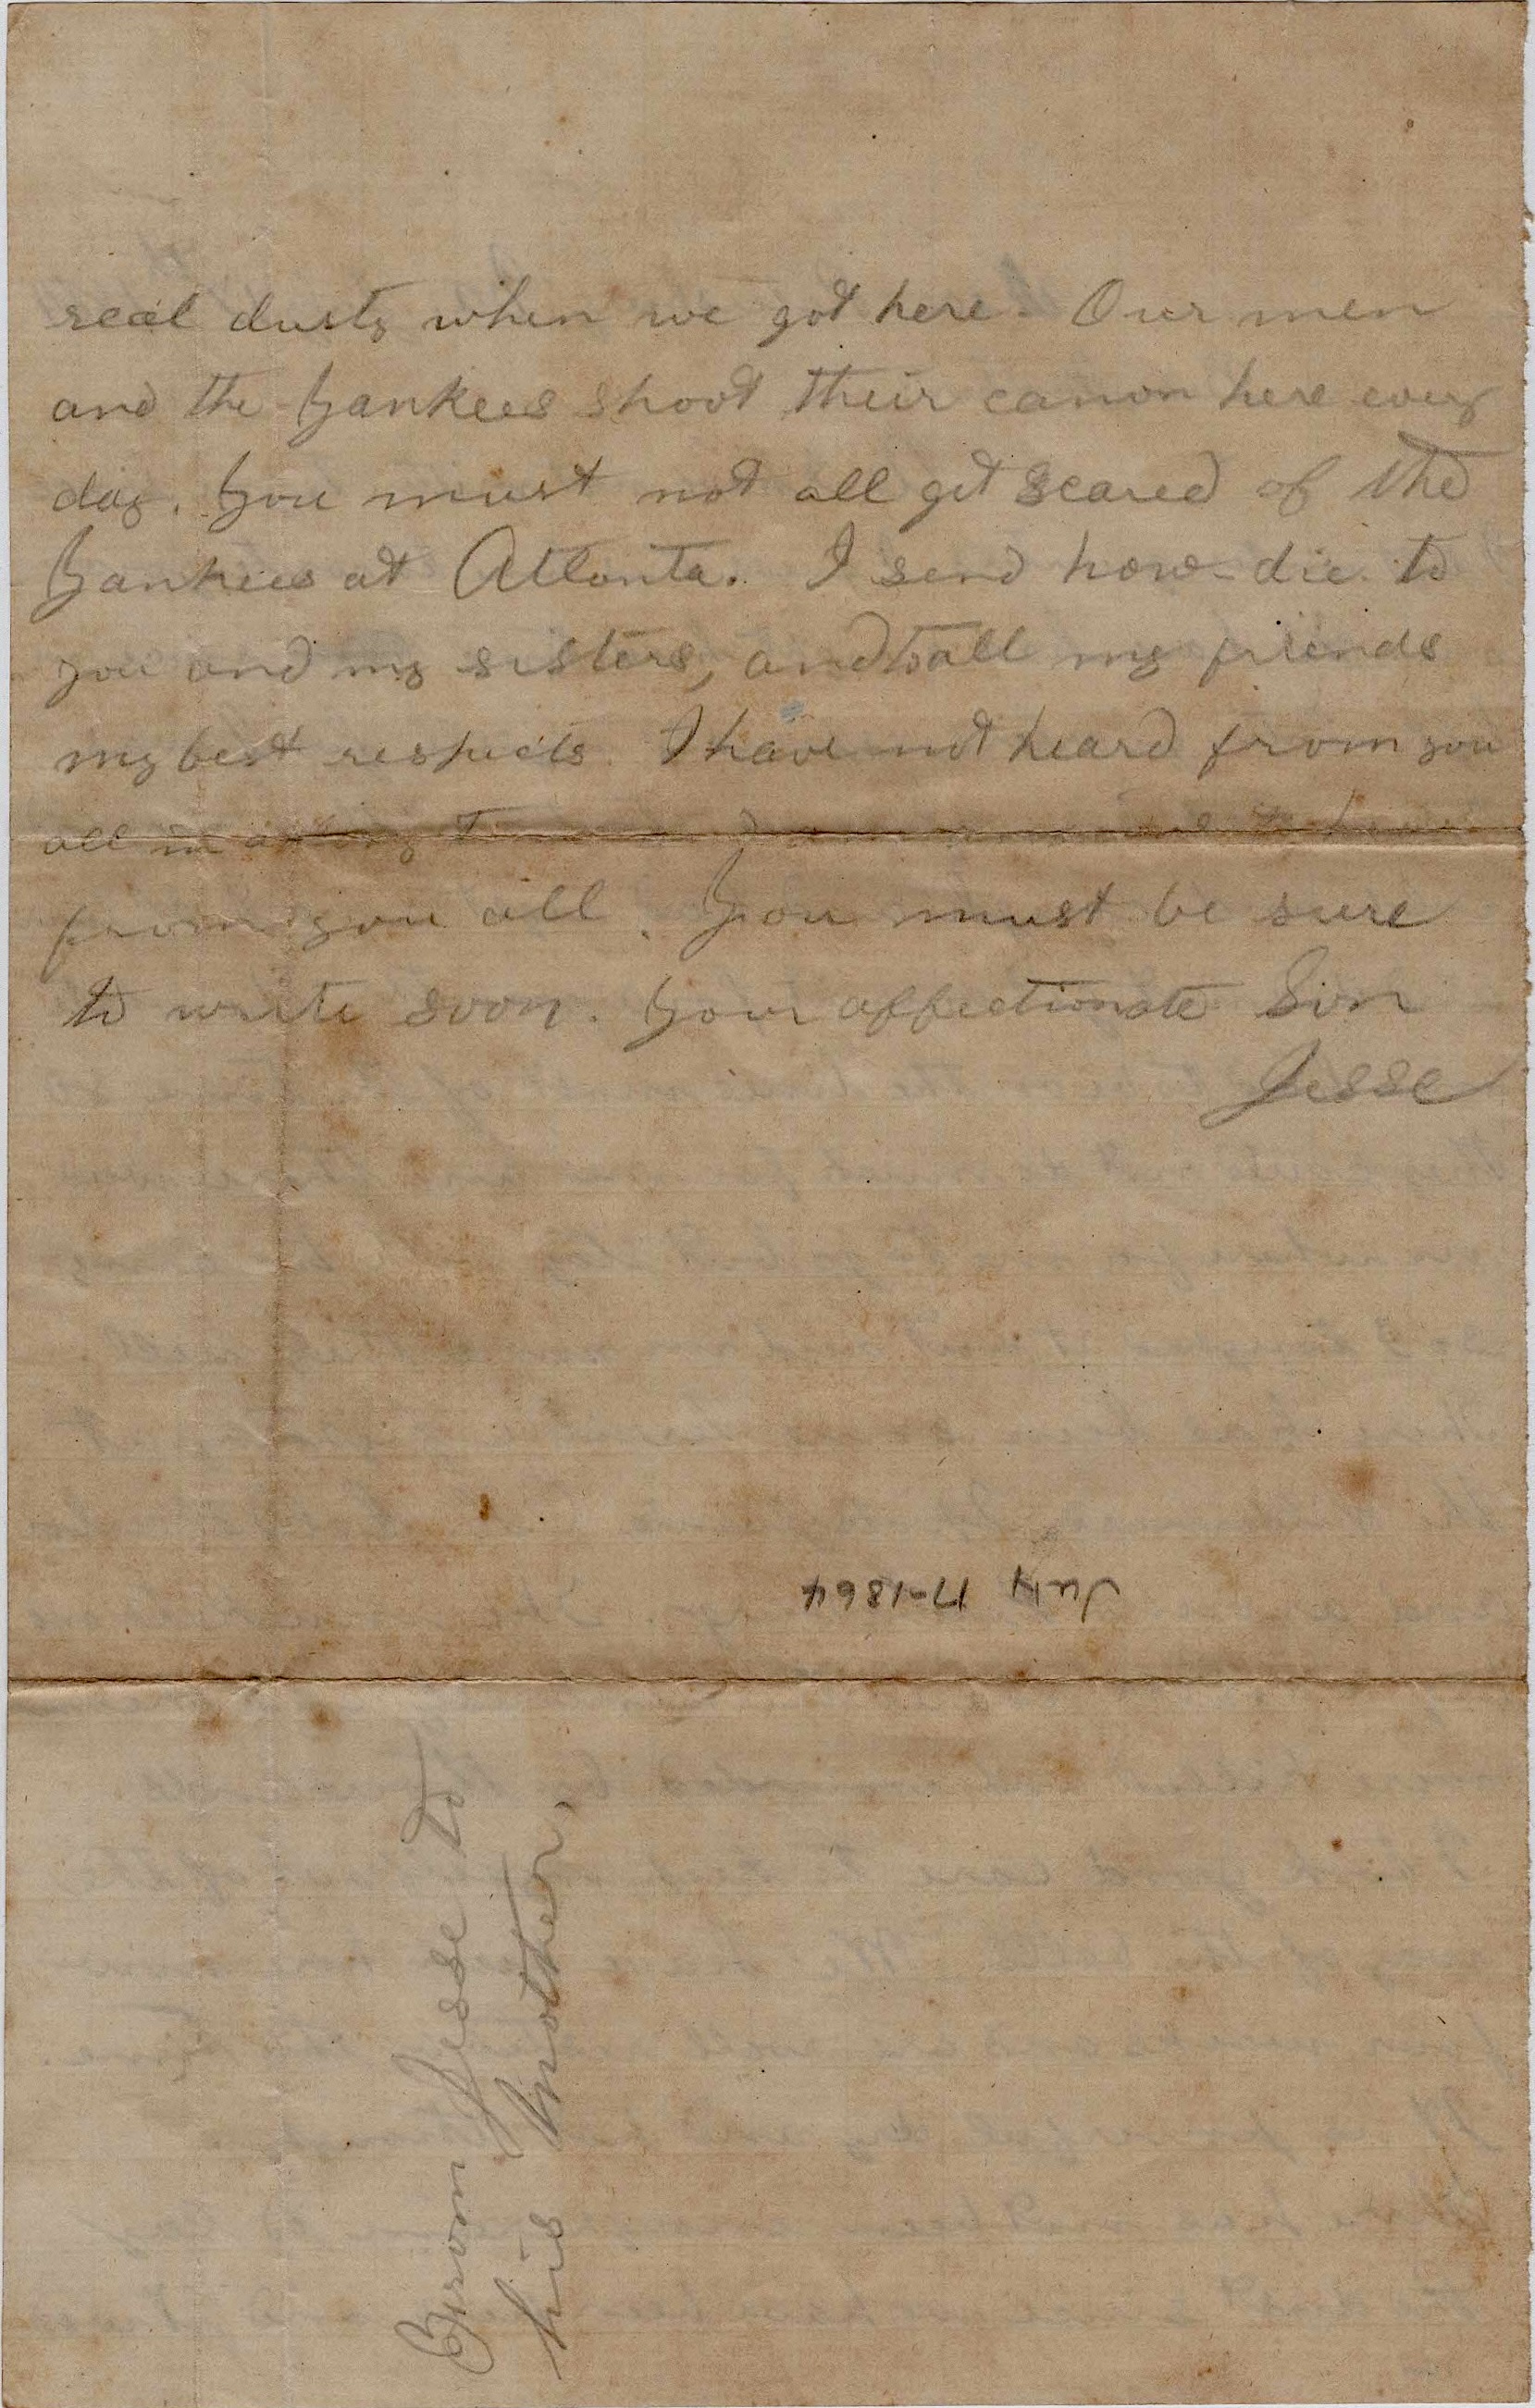 real dusty when we got here. Our men
and the Yankees shoot their canon here every
day. You must not all get scared of the
Yankees at Atlanta. I send how-die to
you and my sisters, and to all my friends
my best respects. I have not heard from you
all in a long time and am anxious to hear
from you all. You must be sure
to write soon. Your affectionate Son
Jesse
July 17-1864
From Jesse to
his Mother,